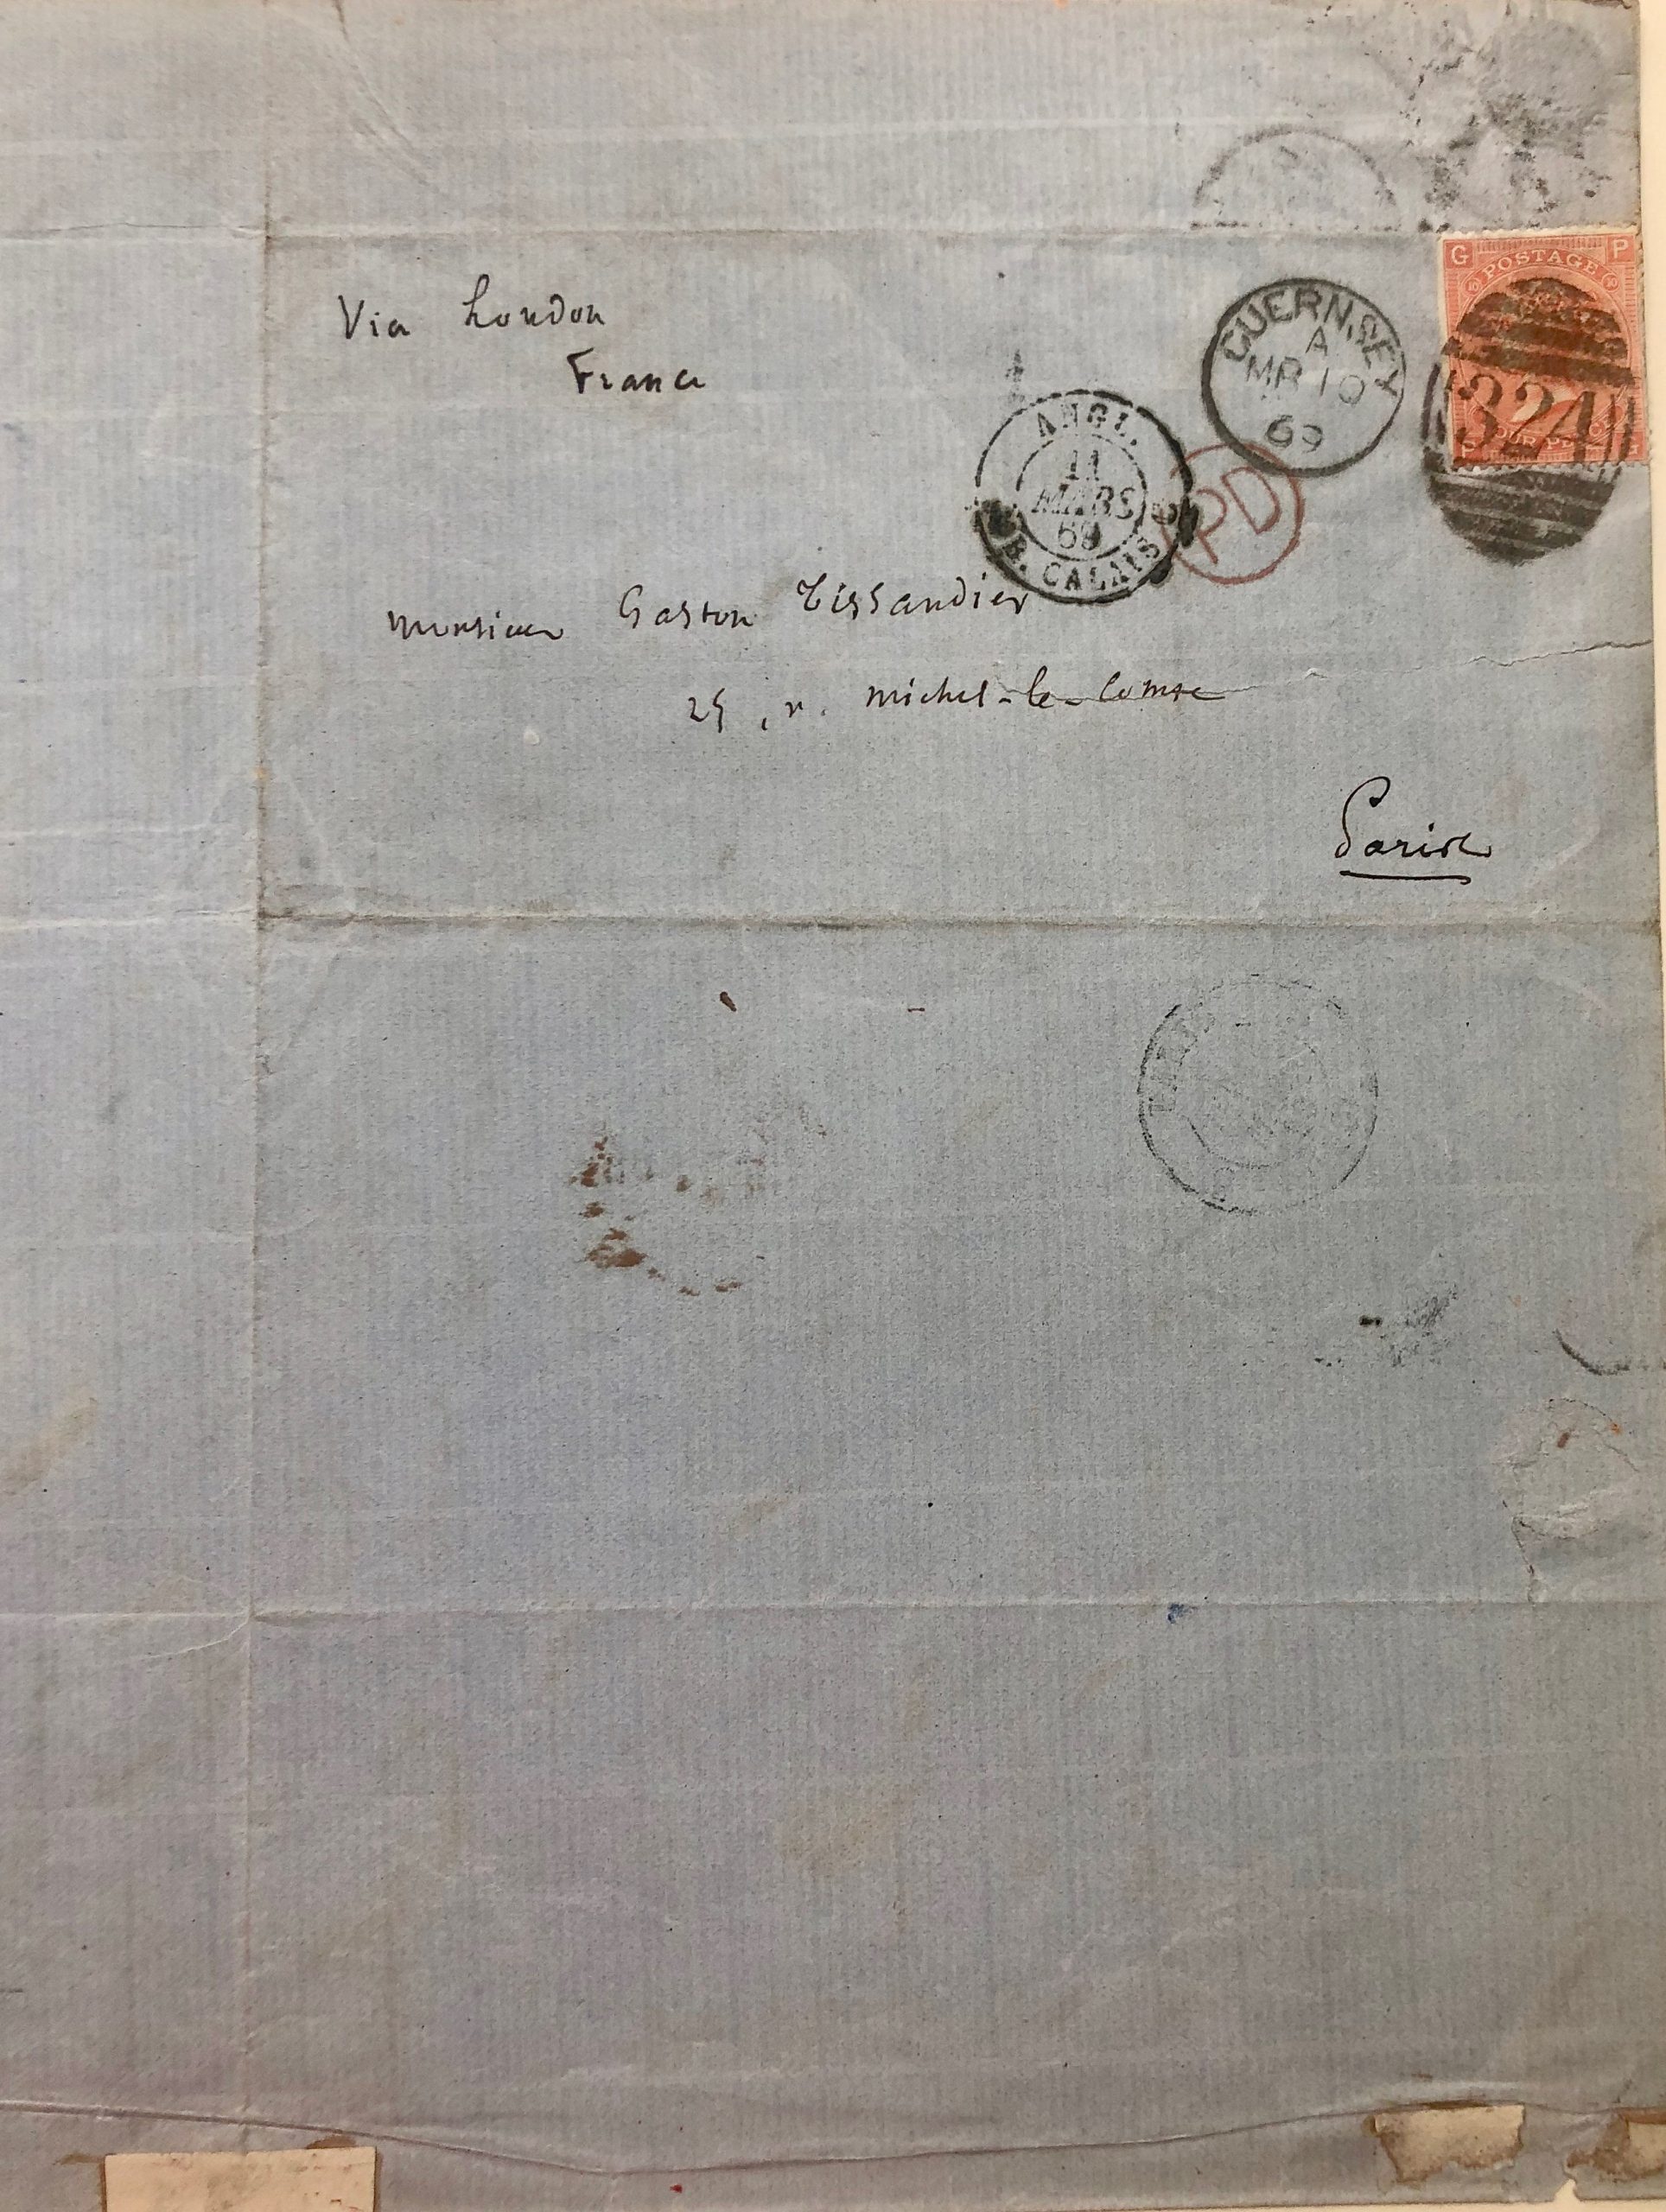 Via London
France
G P
POSTAGE
324
GUERNSEY
A
MR 10
69
ANGL.
11
MARS
69
CALAIS
PD
Monsieur Gaston Tissandier
25, r. Michel-le-Comte
Paris